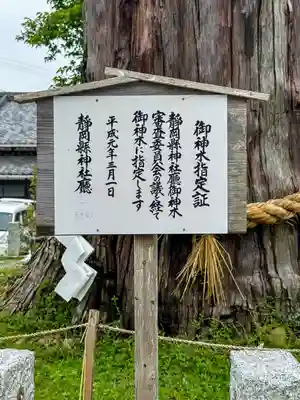 御神木指定証
静岡縣神社廳御神木
審査委員会の議を経て
御神木に指定します
平成元年三月一日
静岡縣神社廳